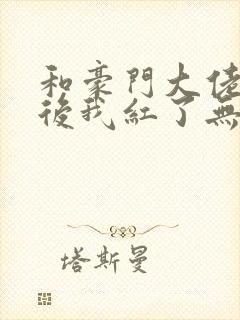 和豪門大佬
後我紅了無
塔斯曼